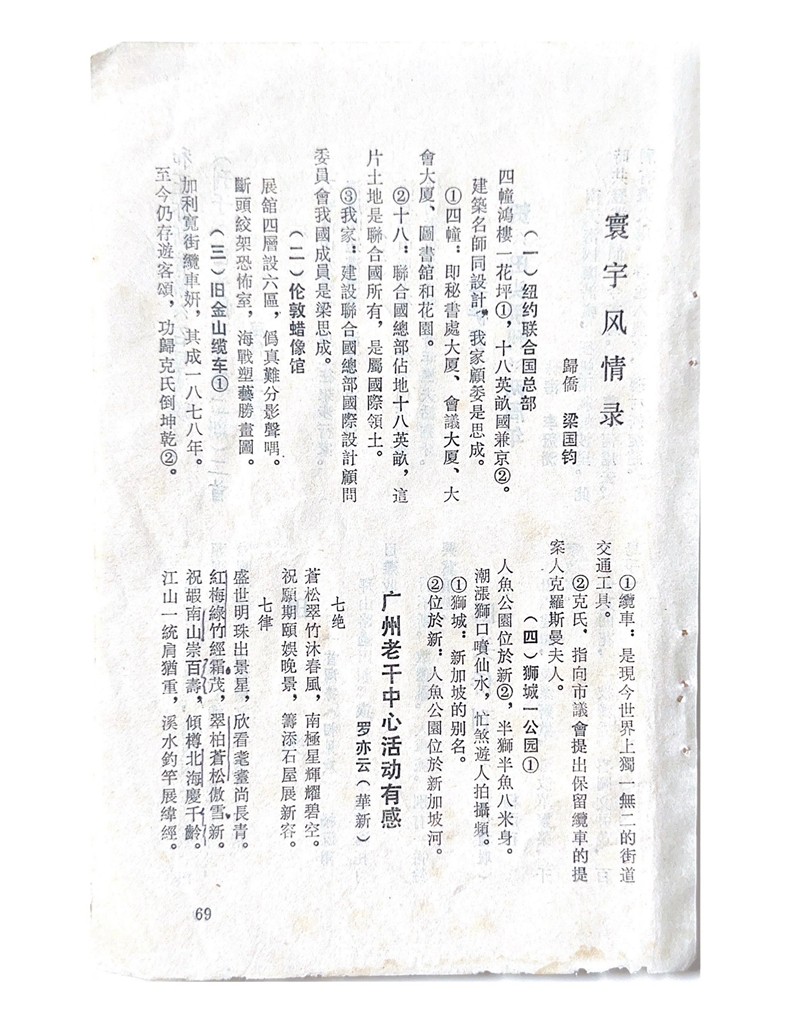 寰宇风情录
歸僑　梁国钧
（一）纽约联合国总部
四幢鴻樓一花坪①，十八英畝國兼京②。
建築名師同設計，我家顧委是思成。
①四幢：即秘書處大厦、會議大厦、大
會大厦、圖書館和花園。
②十八：聯合國總部佔地十八英畝，這
片土地是聯合國所有，是屬國際領土。
③我家：建設聯合國總部國際設計顧問
委員會我國成員是梁思成。
（二）伦敦蜡像馆
展舘四層設六區，僞真難分影聲喁。
斷頭絞架恐怖室，海戰塑藝勝畫圖。
（三）旧金山缆车①
加利寬街纜車妍，其成一八七八年。
至今仍存遊客頌，功歸克氏倒坤乾②。
①纜車：是現今世界上獨一無二的街道
交通工具。
②克氏，指向市議會提出保留纜車的提
案人克羅斯曼夫人。
（四）狮城一公园①
人魚公園位於新②，半獅半魚八米身。
潮漲獅口噴仙水，忙煞遊人拍攝頻。
①獅城：新加坡的别名。
②位於新：人魚公園位於新加坡河。
广州老干中心活动有感
罗亦云（華新）
七绝
蒼松翠竹沐春風，南極星輝耀碧空。
祝願期頤娛晚景，籌添石屋展新容。
七律
盛世明珠出景星，欣看耄耋尚長青。
紅梅綠竹經霜茂，翠柏蒼松傲雪新。
祝嘏南山崇百壽，傾樽北海慶千齡。
江山一統肩猶重，溪水釣竿展緯經。
69